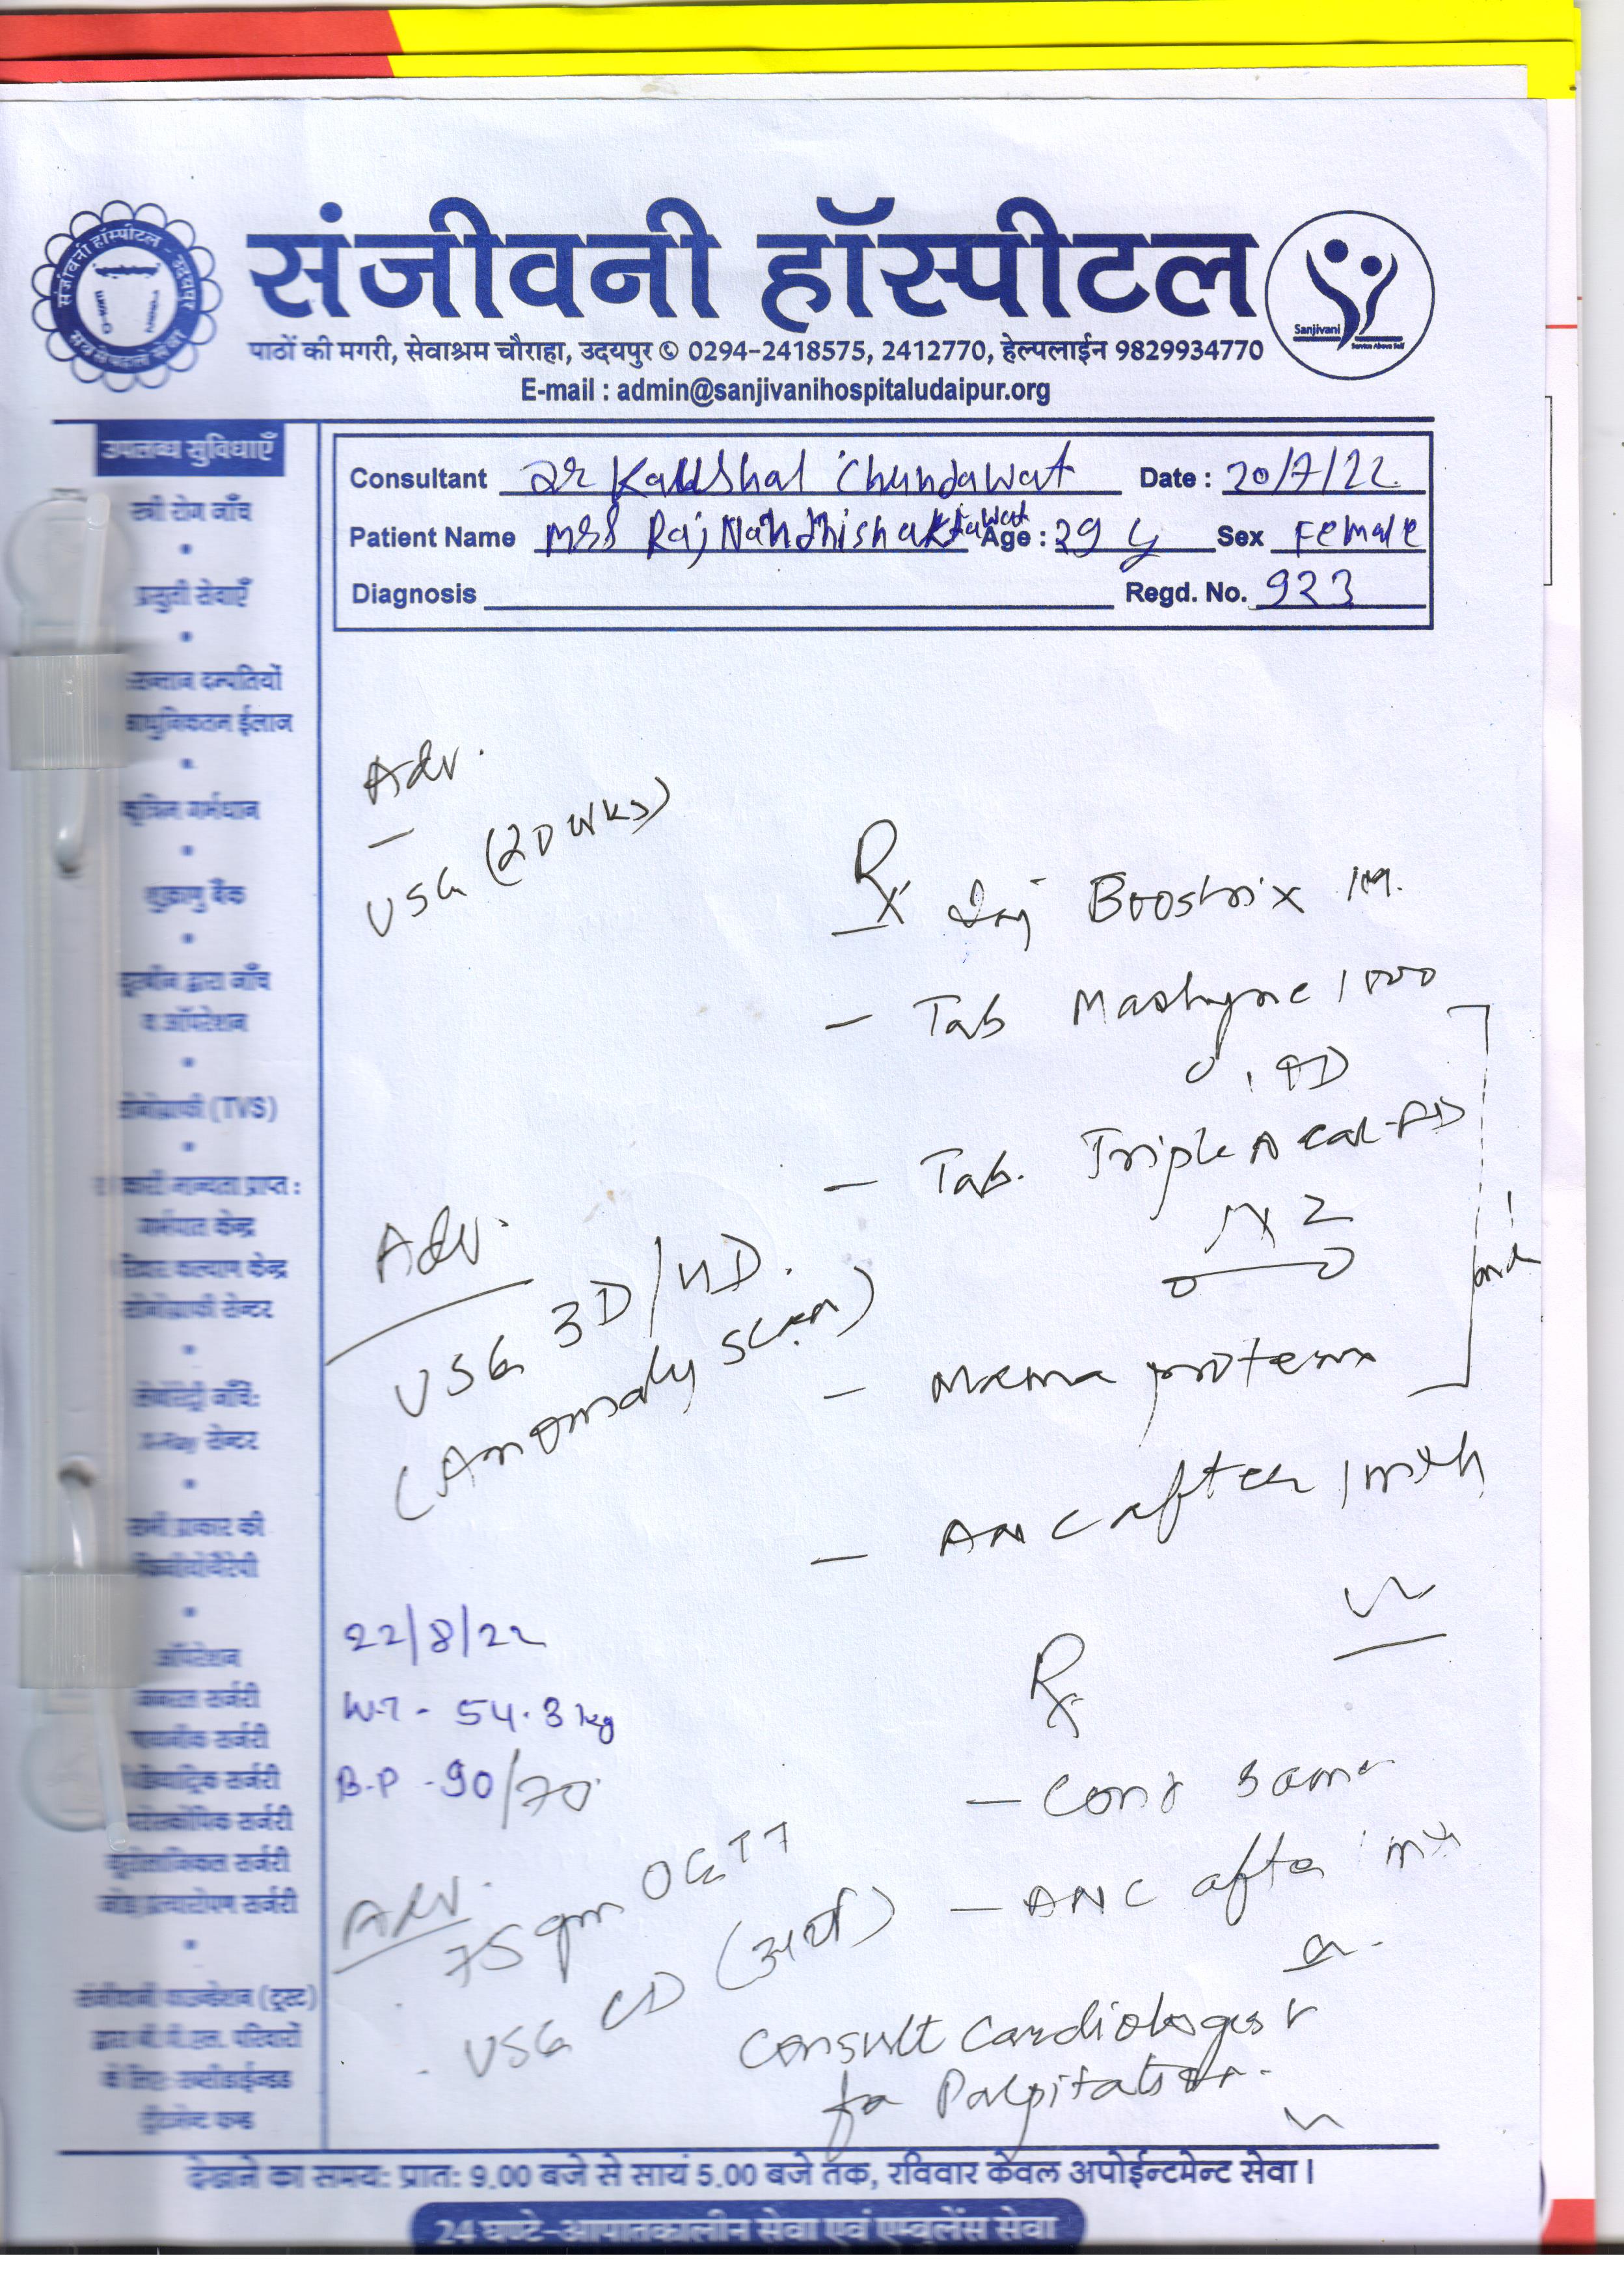 संजीवनी हॉस्पीटल
संजीवनी हॉस्पीटल - उदयपुर
Sanjivani
Service Above Self
पाठों की मगरी, सेवाश्रम चौराहा, उदयपुर 0294-2418575, 2412770, हेल्पलाईन 9829934770
E-mail : admin@sanjivanihospitaludaipur.org
उपलब्ध सुविधाएँ
स्त्री रोग जाँच
प्रसुती सेवाएँ
दम्पतियों
आधुनिकतम ईलाज
कृत्रिम गर्भधान
शुक्राणु बैंक
दूरबीन द्वारा जाँच
व ऑपरेशन
सोनोग्राफी (TVS)
मान्यता प्राप्त :
गर्भपात केन्द्र
कल्याण केन्द्र
सोनोग्राफी सेन्टर
लेबोरेट्री जाँचे:
X-Ray सेन्टर
सभी प्रकार की
फिजीयोथैरेपी
ऑपरेशन
जनरल सर्जरी
सर्जरी
सर्जरी
सर्जरी
सर्जरी
जोड़ प्रत्यारोपण सर्जरी
संजीवनी फाउन्डेशन (ट्रस्ट)
द्वारा बी.पी.एल. परिवारों
के लिए
Consultant Dr Kaushal Chundawat Date : 20/7/22
Patient Name Mrs Raj Nandhi shaktawat Age : 29 y Sex Female
Diagnosis Regd. No. 923
Adv.
USG (20 wks)
Rx Inj Boostrix IM.
- Tab 1000
- Tab. Triple A Cal-AD
Adv.
USG 3D/4D.
(Anomaly scan)
- Mama protein
- ANC after 1 mth
22/8/22
W.T - 54.3 kg
B.P - 90/70
Rx
- Cont same
- ANC after 1 mth
Adv.
75 gm OGTT
USG CD
Consult Cardiologist
for Palpitation.
देखने का समय: प्रात: 9.00 बजे से सायं 5.00 बजे तक, रविवार केवल अपोईन्टमेन्ट सेवा।
24 घण्टे-आपातकालीन सेवा एवं एम्बूलेंस सेवा